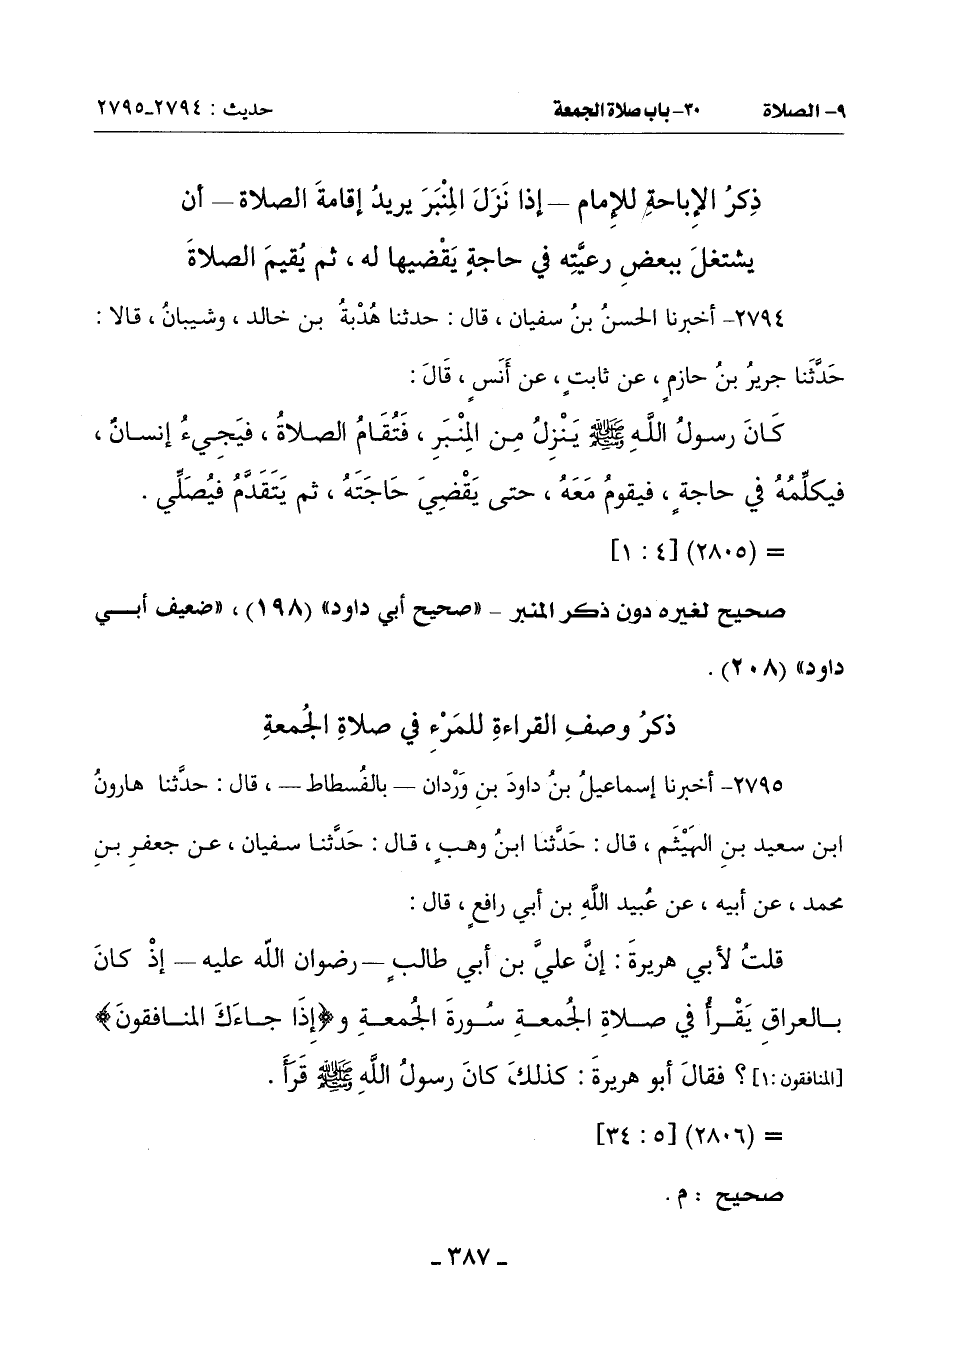 ٩- الصلاة ٣٠- باب صلاة الجمعة حديث : ٢٧٩٤-٢٧٩٥
ذِكرُ الإِباحةِ للإِمام – إذا نَزَلَ المِنْبَرَ يريدُ إقامةَ الصلاة – أن
يشتغلَ ببعضِ رعيَّتِه في حاجةٍ يَقْضيها له ، ثم يُقيمَ الصلاةَ
٢٧٩٤- أخبرنا الحسنُ بنُ سفيان ، قال : حدثنا هُدْبةُ بن خالد ، وشيبانُ ، قالا :
حَدَّثَنا جريرُ بنُ حازمٍ ، عن ثابتٍ ، عن أَنَسٍ ، قَالَ :
كَانَ رسولُ اللَّهِ ﷺ يَنْزِلُ مِن المِنْبَرِ ، فَتُقَامُ الصلاةُ ، فيَجِيءُ إنسانٌ ،
فيكلِّمُهُ في حاجةٍ ، فيقومُ مَعَهُ ، حتى يَقْضِيَ حَاجَتَهُ ، ثم يَتَقَدَّمُ فيُصَلِّي .
= (٢٨٠٥) [٤ : ١]
صحيح لغيره دون ذكر المنبر – «صحيح أبي داود» (١٩٨) ، «ضعيف أبي
داود» (٢٠٨) .
ذكرُ وصفِ القراءةِ للمَرْءِ في صلاةِ الجُمعةِ
٢٧٩٥- أخبرنا إسماعيلُ بنُ داودَ بنِ وَرْدان – بالفُسطاط – ، قال : حدَّثنا هارونُ
ابن سعيد بنِ الهَيْثَم ، قال : حَدَّثنا ابنُ وهبٍ ، قال : حَدَّثنا سفيان ، عن جعفرِ بنِ
محمد ، عن أبيه ، عن عُبيد اللَّهِ بن أبي رافعٍ ، قال :
قلتُ لأبي هريرةَ : إنَّ عليَّ بن أبي طالبٍ –رضوان اللَّه عليه– إذْ كانَ
بالعراقِ يَقْرأُ في صلاةِ الجُمعةِ سُورةَ الجُمعةِ و﴿إِذَا جاءَكَ المنافقونَ﴾
[المنافقون :١] ؟ فقالَ أبو هريرةَ : كذلكَ كانَ رسولُ اللَّهِ ﷺ قَرَأَ .
= (٢٨٠٦) [٥ : ٣٤]
صحيح : م .
- ٣٨٧ -